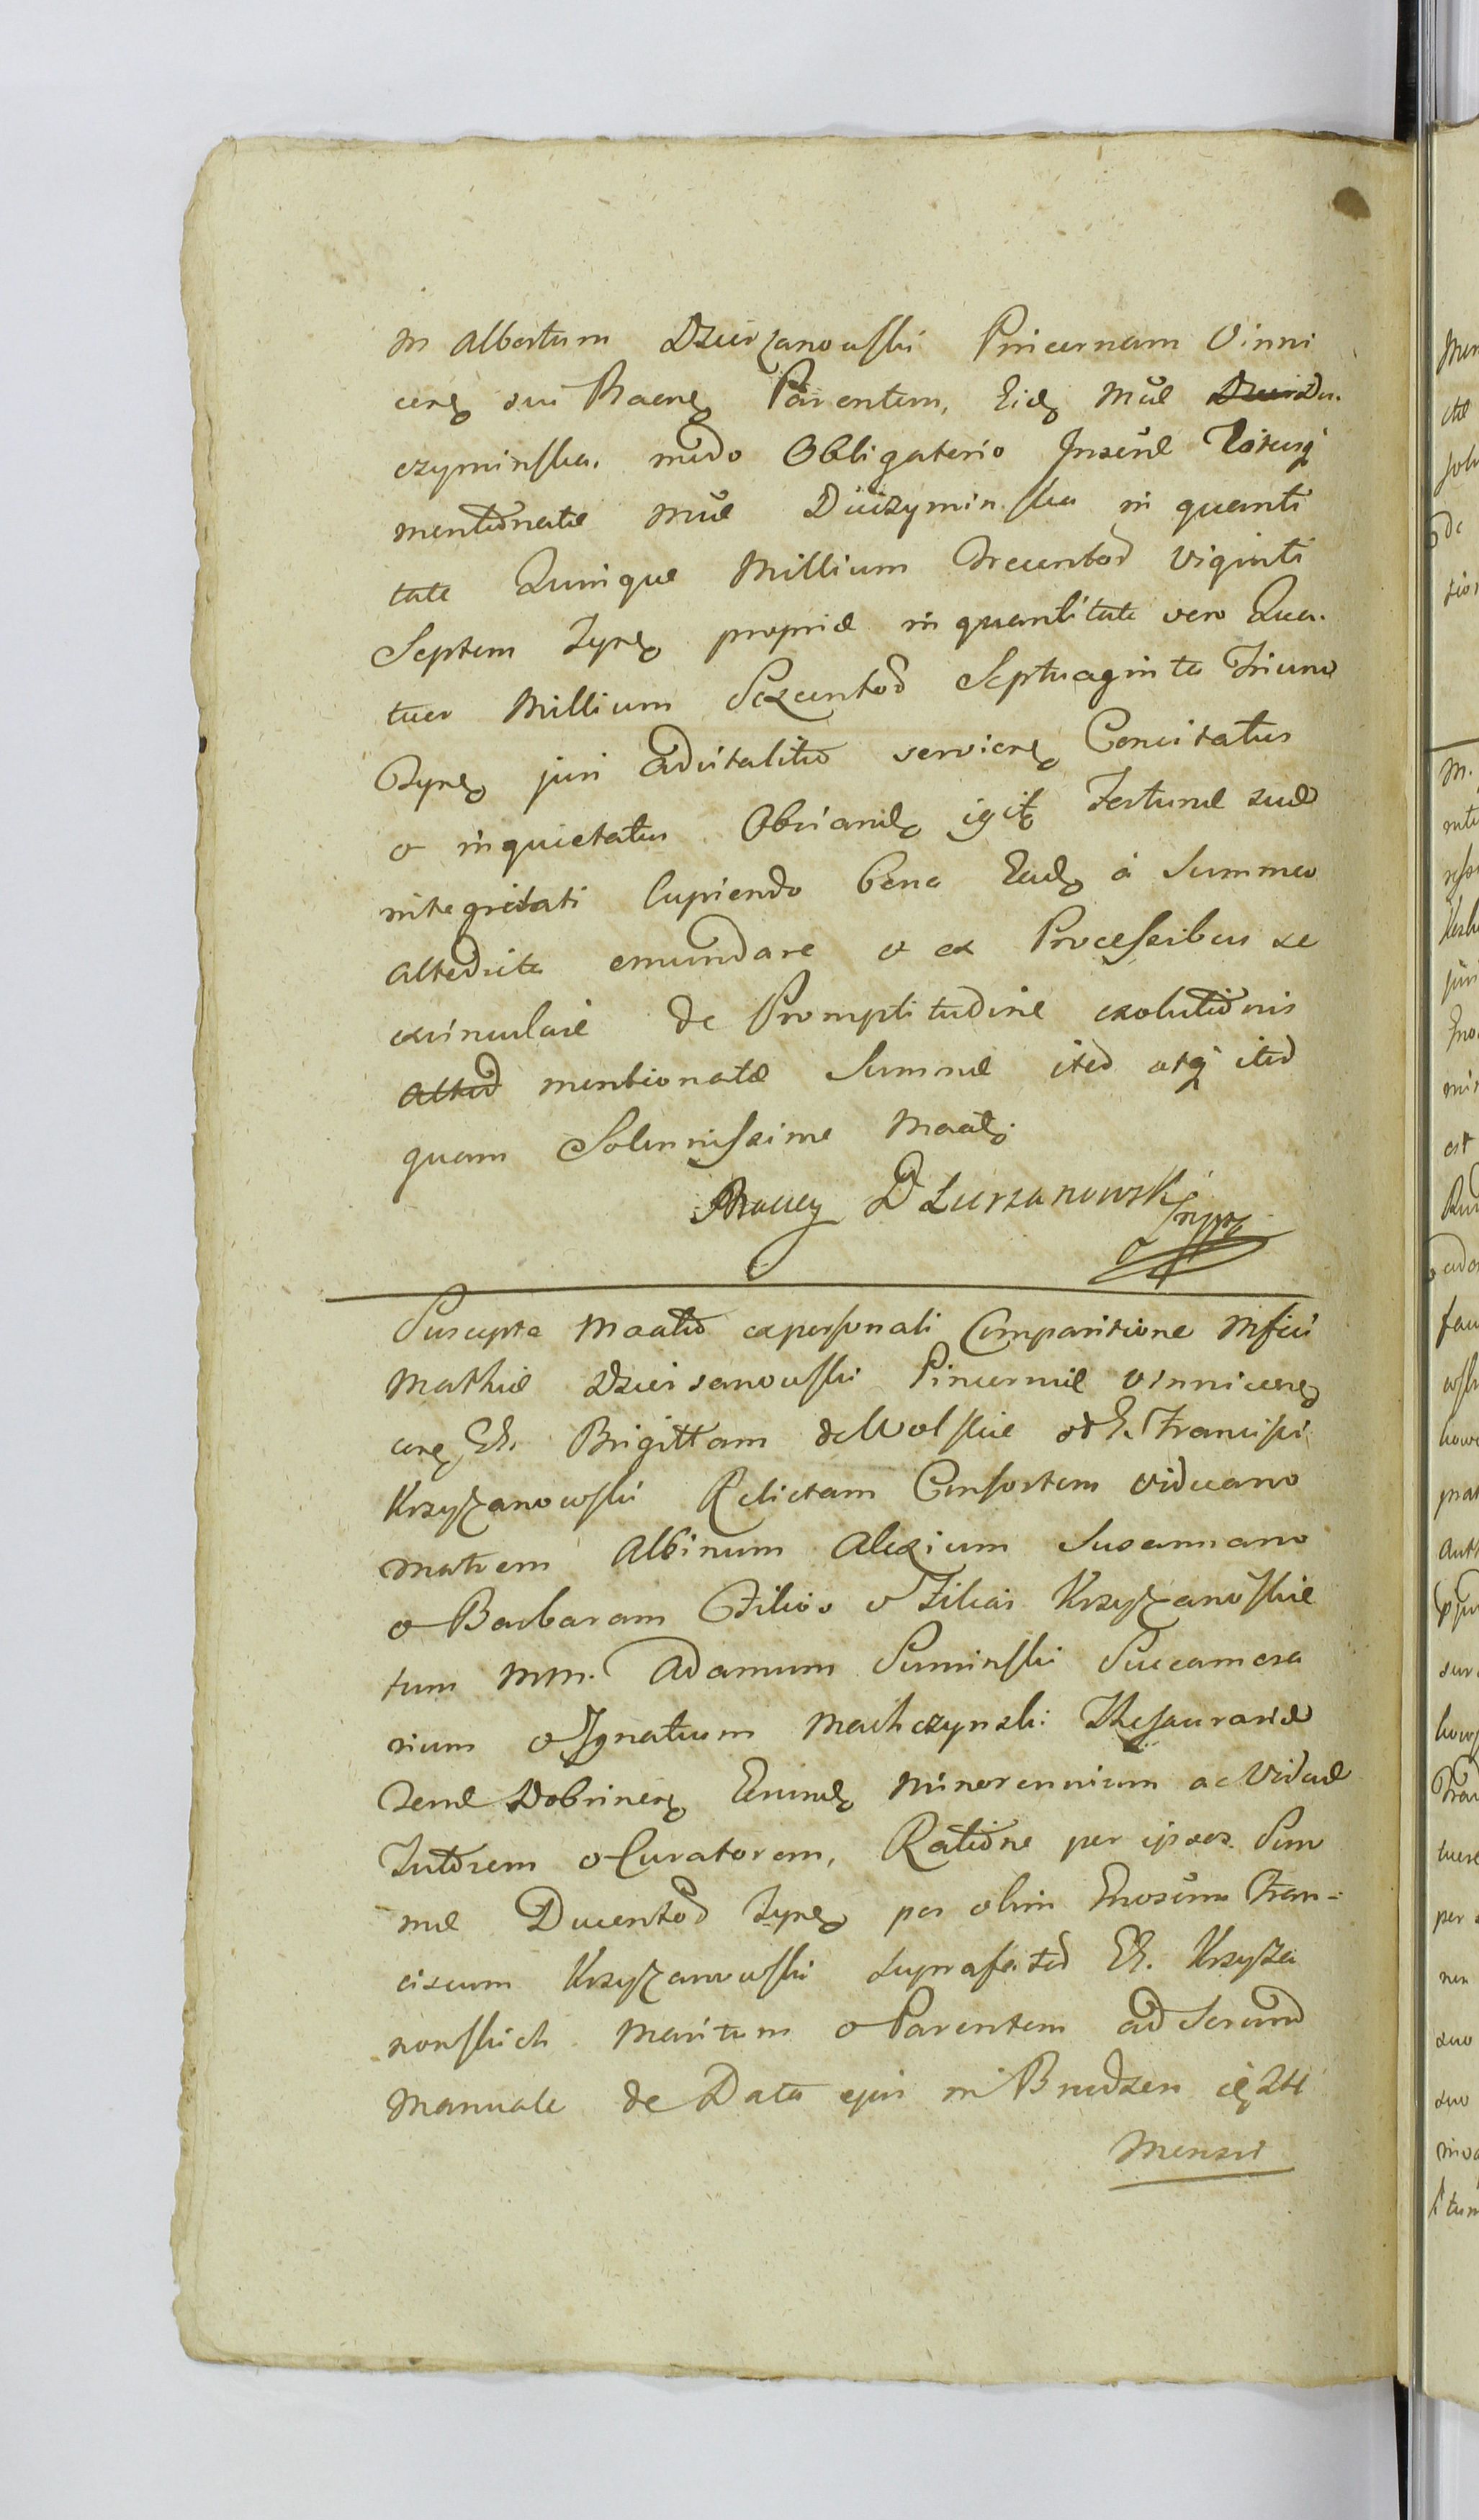 M Albertum Dzierzanowski Pincernam Vinni
cen sui Parentem, Eid Mae
czyminska. modo Obligatorio
mentionatae Mae Duczyminska in quanti
tate Quinque Millium Trecentor Viginti
Septem Tynf propriae in quantitate vero Qua.
tuor Millium Sexentor Septuaginta Trium
Tynf juri advitalitio servien Concitatus
& inquietatus Obviand igit Fortunae suae
integritati Cupiendo bona Ead á Summa
altedicta emundare & ex Processibus se
exvinculare de Promptitudine exolutionis
mentionatae Summae ited atq ited
quam Solennissime Maat.
Maciey Dzierzanowski mppa
Suscepta Maatio ex personali Comparitione Mfici
Mathiae Dzierzanowski Pincernae Vinnicen
cen Gf. Brigittam de Wolskie G. Francisci
Krzyzanowski Relictam Consortem viduam
matrem Albinum Alexium Susannam
& Barbaram Filios & Filias Krzyzanowskie
tum MM. Adamum Suminski Succamera
rium & Ignatium Machczynski Thesaurariu
Terrae Dobrinen Eorund Minorennium ac Viduae
Tutorem & Curatorem, Ratione per ipsos Sum
mae Ducentor Tynf per olim Gnosum Fran-
ciscum Krzyzanowski suprafator G. Krzyza
nowskich Maritum & Parentem ad Scrund
Manuale de Data ejus in Brudzen 24
Mensis